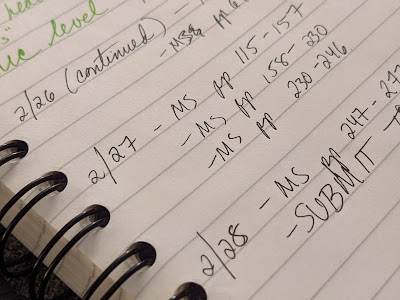 level
2/26 (continued) -
- MS
2/27 - MS pp 115-157
- MS pp 158-230
- MS pp 230-246
2/28 - MS pp 247-277
- SUBMIT